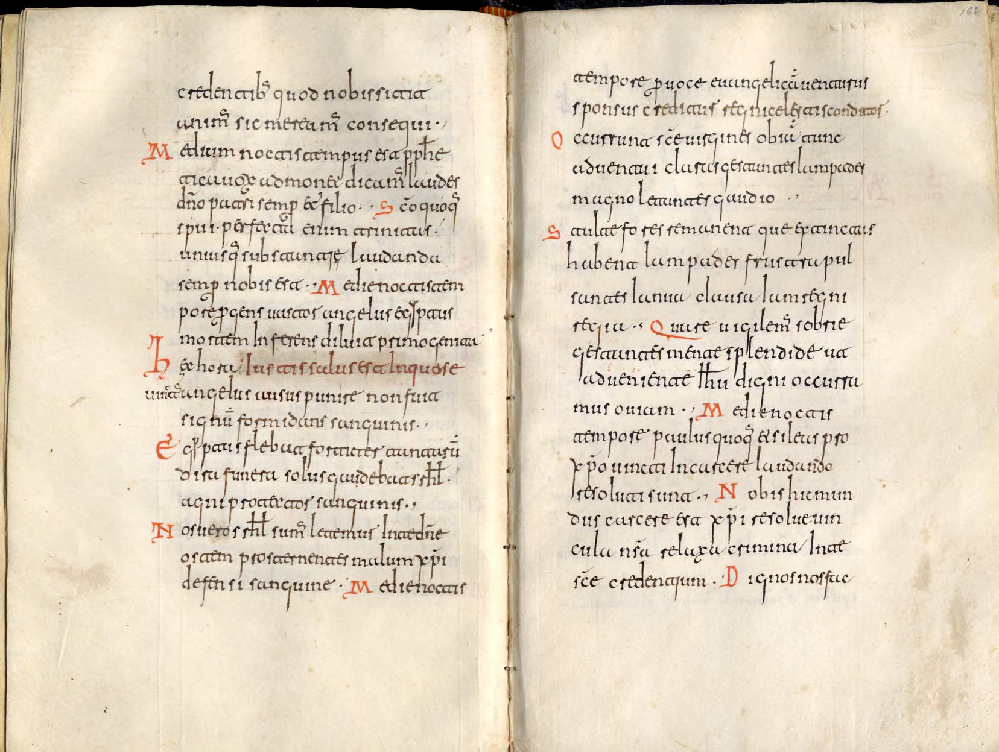 credentib; quod nobis sicut
animā sic mercamur̄ consequi.
Medium noctis tempus est pphe
tica vox admonet dicam̄ laudes
dn̄o patri semp et filio.. Sc̄o quoq;
spui. perfecta enim trinitas.
uniusq; substantię laudanda
semp nobis est.. Medie noctis tem
pore pgens vastos angelus egiptus
mortem Inferens delevit primogenita
hec hora Iustis salus est Inquos e
angelus ausus punire non erat
signū formidans sanguinis..
Egiptus flebat fortiter tantorū
dira funera solus gaudebat srhl.
agni protectos sanguinis..
Nos vero srhl sum̄ letemur Inte dn̄e
ostem prosternentes malum xp̄i
defensi sanguine. Medie noctis
162
tempore quo voce evangelica venturus
sponsus creditur regni celestis conditor.
Occurrunt sc̄e virgines obiā tunc
adventui clarus gestantes lampades
magno letantes gaudio..
Stulte fores remanent que extinctas
habent lampades frustra pul
santes Ianua clausa Iam regni
regia.. Quare vigilem̄ sobrie
gestantes mente splendide ut
adveniente Ihu digni occurra
mus oviam. Medie noctis
tempore paulus quoq; et sileas pro
xp̄o vincti Incarcere laudando
resoluti sunt.. Nobis hic mun
dus carcer est xp̄i resolve vin
cula nr̄a relaxa crimina Inte
sc̄e credentium. Dignos nos fac